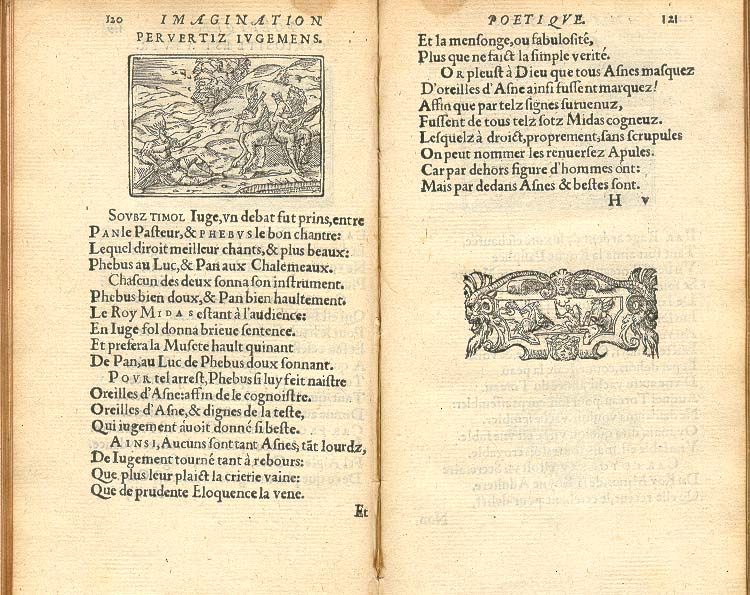 120 IMAGINATION
PERVERTIZ IVGEMENS.
SOVBZ TIMOL Iuge, vn debat fut prins, entre
PAN le Pasteur, & PHEBVS le bon chantre:
Lequel diroit meilleur chants, & plus beaux:
Phebus au Luc, & Pan aux Chalemeaux.
Chascun des deux sonna son instrument.
Phebus bien doux, & Pan bien haultement.
Le Roy MIDAS estant à l'audience:
En Iuge fol donna brieue sentence.
Et prefera la Musete hault quinant
De Pan, au Luc de Phebus doux sonnant.
POVR tel arrest, Phebus si luy feit naistre
Oreilles d'Asne: affin de le cognoistre.
Oreilles d'Asne, & dignes de la teste,
Qui iugement auoit donné si beste.
AINSI, Aucuns sont tant Asnes, tãt lourdz,
De Iugement tourné tant à rebours:
Que plus leur plaict la crierie vaine:
Que de prudente Eloquence la vene.
Et
POETIQVE. 121
Et la mensonge, ou fabulosité,
Plus que ne faict la simple verité.
OR pleust à Dieu que tous Asnes masquez
D'oreilles d'Asne ainsi fussent marquez!
Affin que par telz signes suruenuz,
Fussent de tous telz sotz Midas cogneuz.
Lesquelz à droict, proprement, sans scrupules
On peut nommer les renuersez Apules.
Car par dehors figure d'hommes ont:
Mais par dedans Asnes & bestes sont.
H v